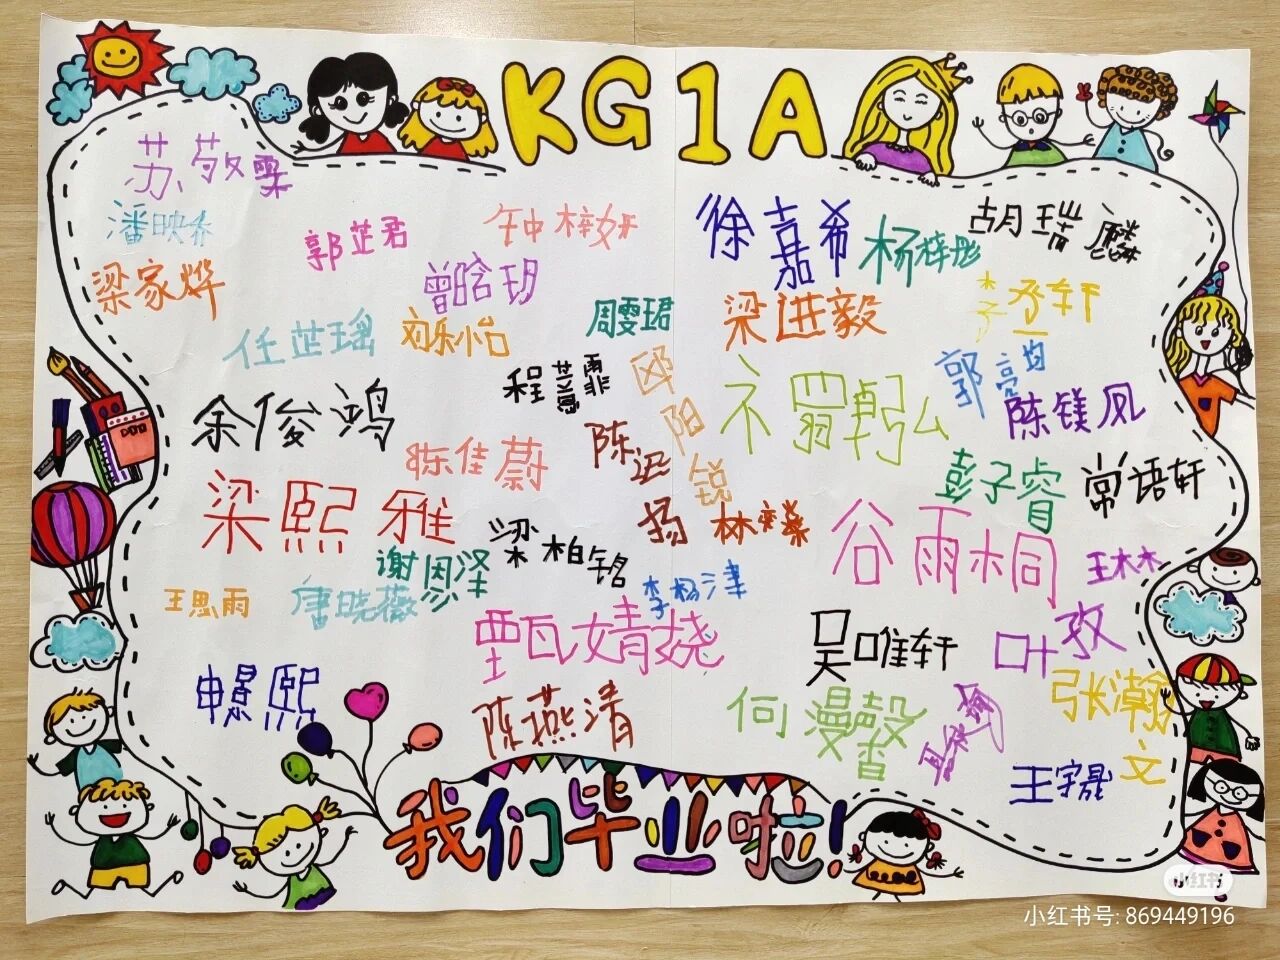 KG1A
苏敬雯
潘映希
郭芷君
钟梓妍
徐嘉希
杨梓彤
胡瑞麟
梁家烨
曾晗玥
周雯珺
梁进毅
李丞轩
任芷瑶
程慧霏
邱阳锐
郭亮均
陈镁凤
余俊鸿
陈佳蔚
陈迅扬
彭子睿
常语轩
梁熙雅
梁柏铭
谷雨桐
王林木
谢恩泽
李杨津
王思雨
唐晓薇
甄婧娆
吴唯轩
叶孜
申景熙
陈燕清
何漫馨
张瀚文
王宇晟
我们毕业啦!
小红书
小红书号: 869449196